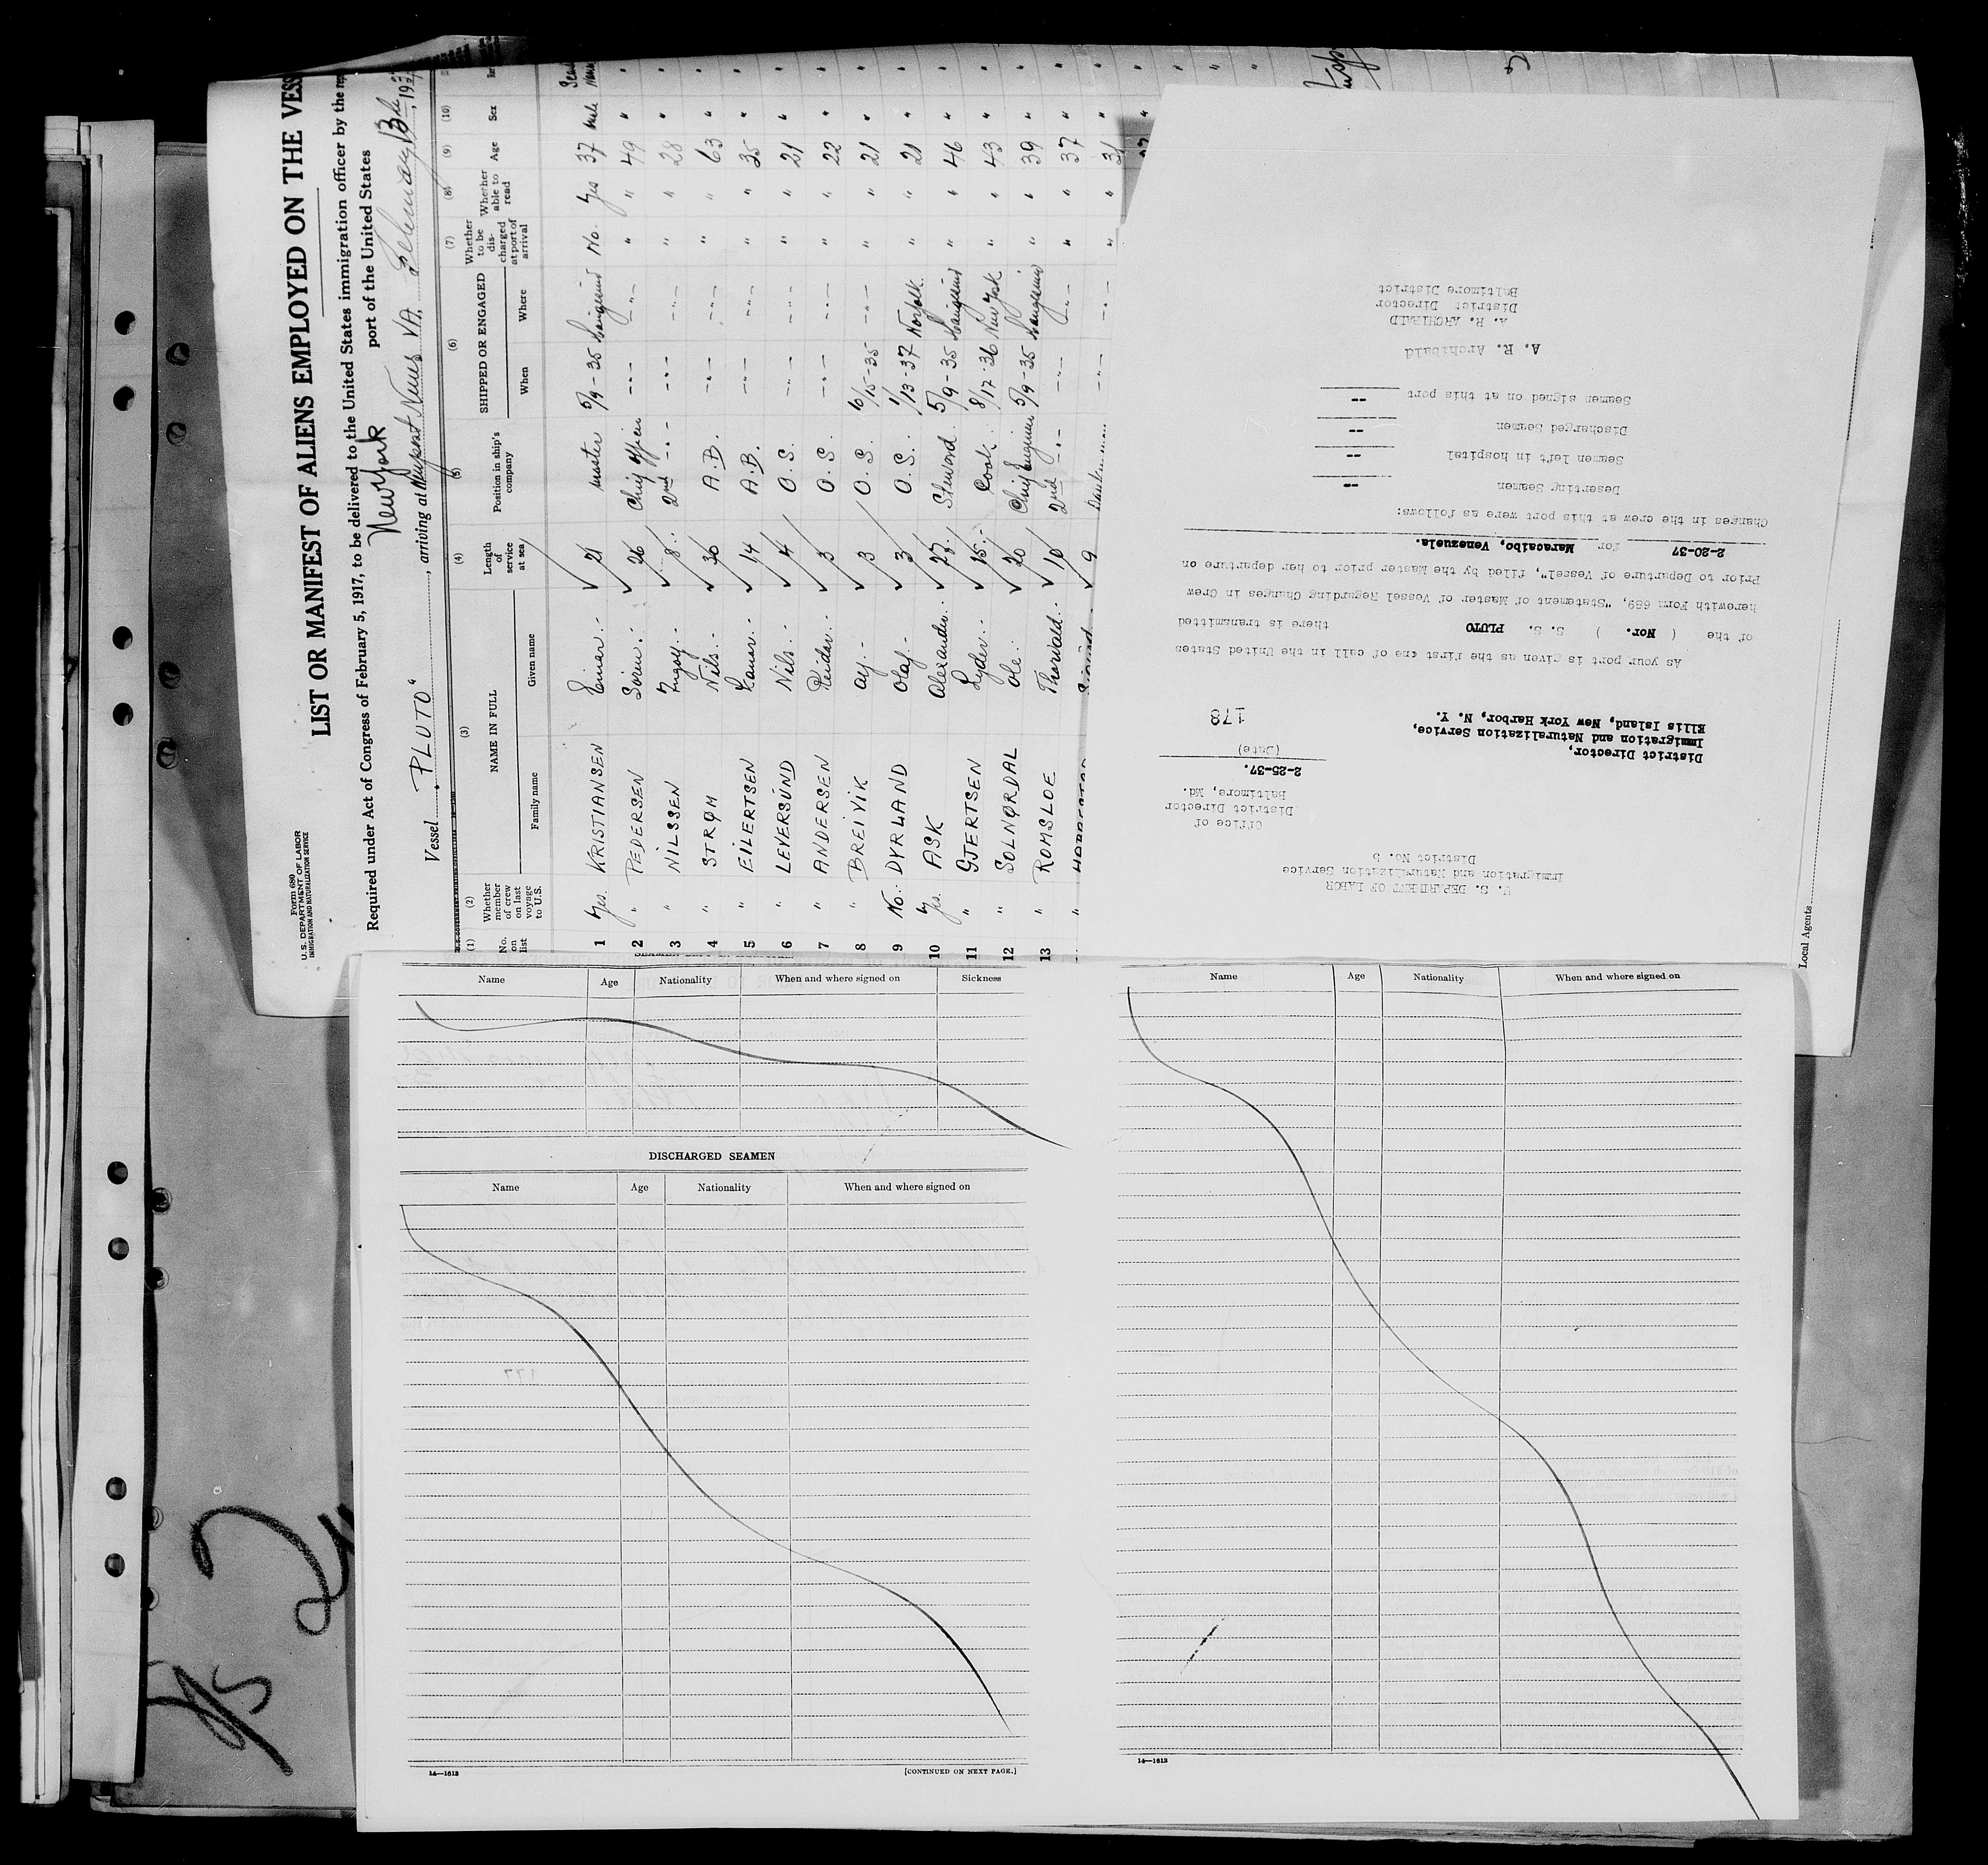 Form 680
U. S. DEPARTMENT OF LABOR
IMMIGRATION AND NATURALIZATION SERVICE
LIST OR MANIFEST OF ALIENS EMPLOYED ON THE VESS
Required under Act of Congress of February 5, 1917, to be delivered to the United States immigration officer by the rep
New York port of the United States
Vessel „PLUTO“, arriving at Newport News VA. February 13th, 193
(1) (2) (3) (4) (5) (6) (7) (8) (9) (10)
No. on list Whether member of crew on last voyage to U.S. NAME IN FULL Family name Given name Length of service at sea Position in ship's company SHIPPED OR ENGAGED When Where Whether to be discharged at port of arrival Whether able to read Age Sex
1 Yes. KRISTIANSEN Einar.- 21 Master 5/9-35 No. Yes 37 Male
2 " PEDERSEN Sören.- 26 Chief Officer -"- -"- " " 49 "
3 " NILSSEN Ingolf.- 8.- 2nd -"- -"- -"- " " 28 "
4 " STRØM Nils.- 36 A.B. -"- -"- " " 63 "
5 " EILERTSEN 14 A.B. -"- -"- " " 35 "
6 " LEVERSUND Nils.- 4 O.S. -"- -"- " " 21 "
7 " ANDERSEN Reidar.- 3 O.S. -"- -"- " " 22 "
8 " BREIVIK 3 O.S. 6/15-35 -"- " " 21 "
9 No. DYRLAND Olaf.- 3 O.S. 1/13-37 Norfolk. " " 21 "
10 Yes. ASK Alexander.- 27.- Steward 5/9-35 " " 46 "
11 " GJERTSEN Lyder.- 15.- Cook. 8/17-36 New York " " 43 "
12 " SOLNØRDAL Ole.- 20 Chief Engineer 5/9-35 " " 39 "
13 " ROMSLOE Thorvald.- 10 2nd -"- -"- -"- " " 37 "
" 9 -"- -"- " " 31 "
U. S. DEPARTMENT OF LABOR
Immigration and Naturalization Service
District No. 5
Office of
District Director
Baltimore, Md.
2-25-37.
(Date)
178
District Director,
Immigration and Naturalization Service,
Ellis Island, New York Harbor, N. Y.
As your port is given as the first one of call in the United States
of the ( Nor. ) S. S. PLUTO there is transmitted
herewith Form 689, "Statement of Master of Vessel Regarding Changes in Crew
Prior to Departure of Vessel", filed by the Master prior to her departure on
2-20-37 for Maracaibo, Venezuela.
Changes in the crew at this port were as follows:
Deserting Seamen --
Seamen left in hospital --
Discharged Seamen --
Seamen signed on at this port --
A. R. Archibald
A. R. ARCHIBALD
District Director
Baltimore District
Local Agents
Name Age Nationality When and where signed on Sickness
DISCHARGED SEAMEN
Name Age Nationality When and where signed on
14—1613 [CONTINUED ON NEXT PAGE.]
Name Age Nationality When and where signed on
14—1613